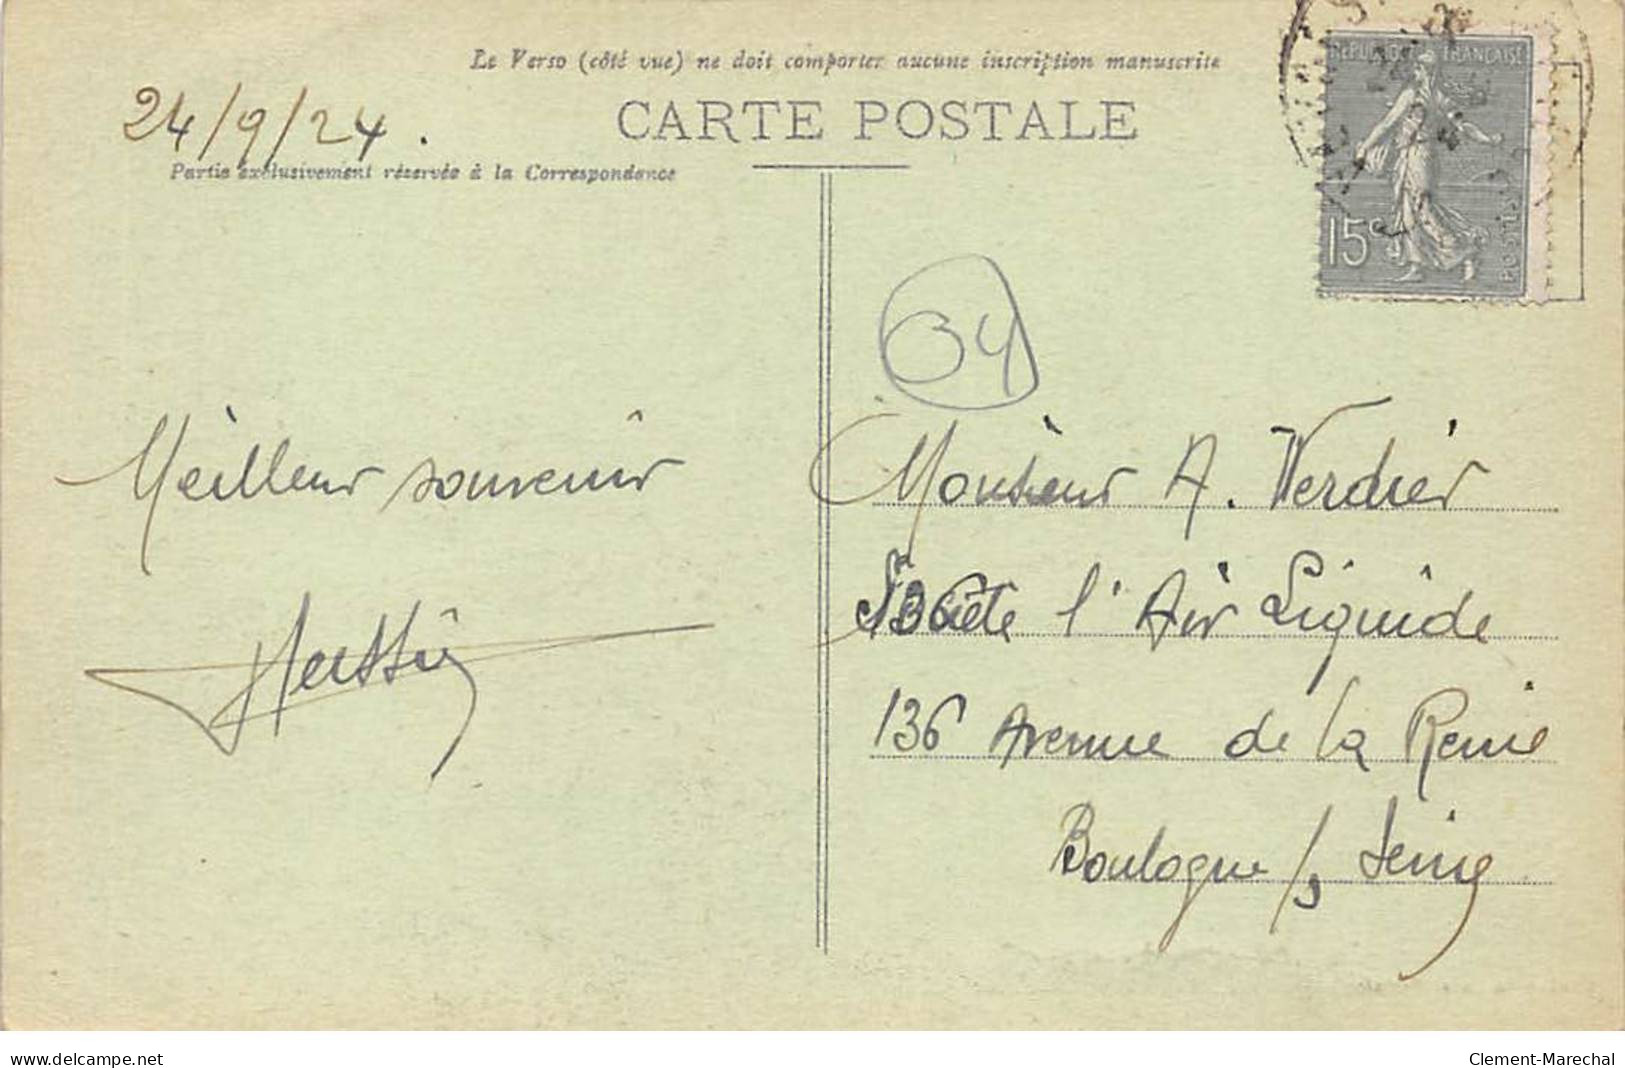 Le Verso (côté vue) ne doit comporter aucune inscription manuscrite
CARTE POSTALE
24/9/24.
Partie exclusivement réservée à la Correspondance
REPUBLIQUE FRANÇAISE
15c
POSTES
34
Meilleur souvenir
Monsieur A. Verdier
Société l'Air Liquide
136 Avenue de la Reine
Boulogne /s Seine
www.delcampe.net
Clement-Marechal